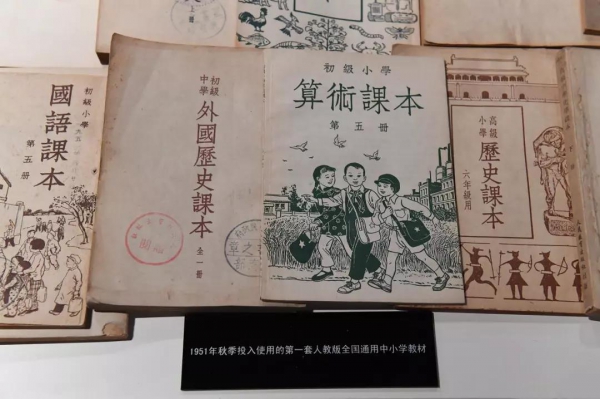 上冊
初級小學
國語課本
第五册
初級
中學
外國歷史課本
全一冊
初級小學
算術課本
第五册
高級
小學
歷史課本
六年級用
1951年秋季投入使用的第一套人教版全国通用中小学教材